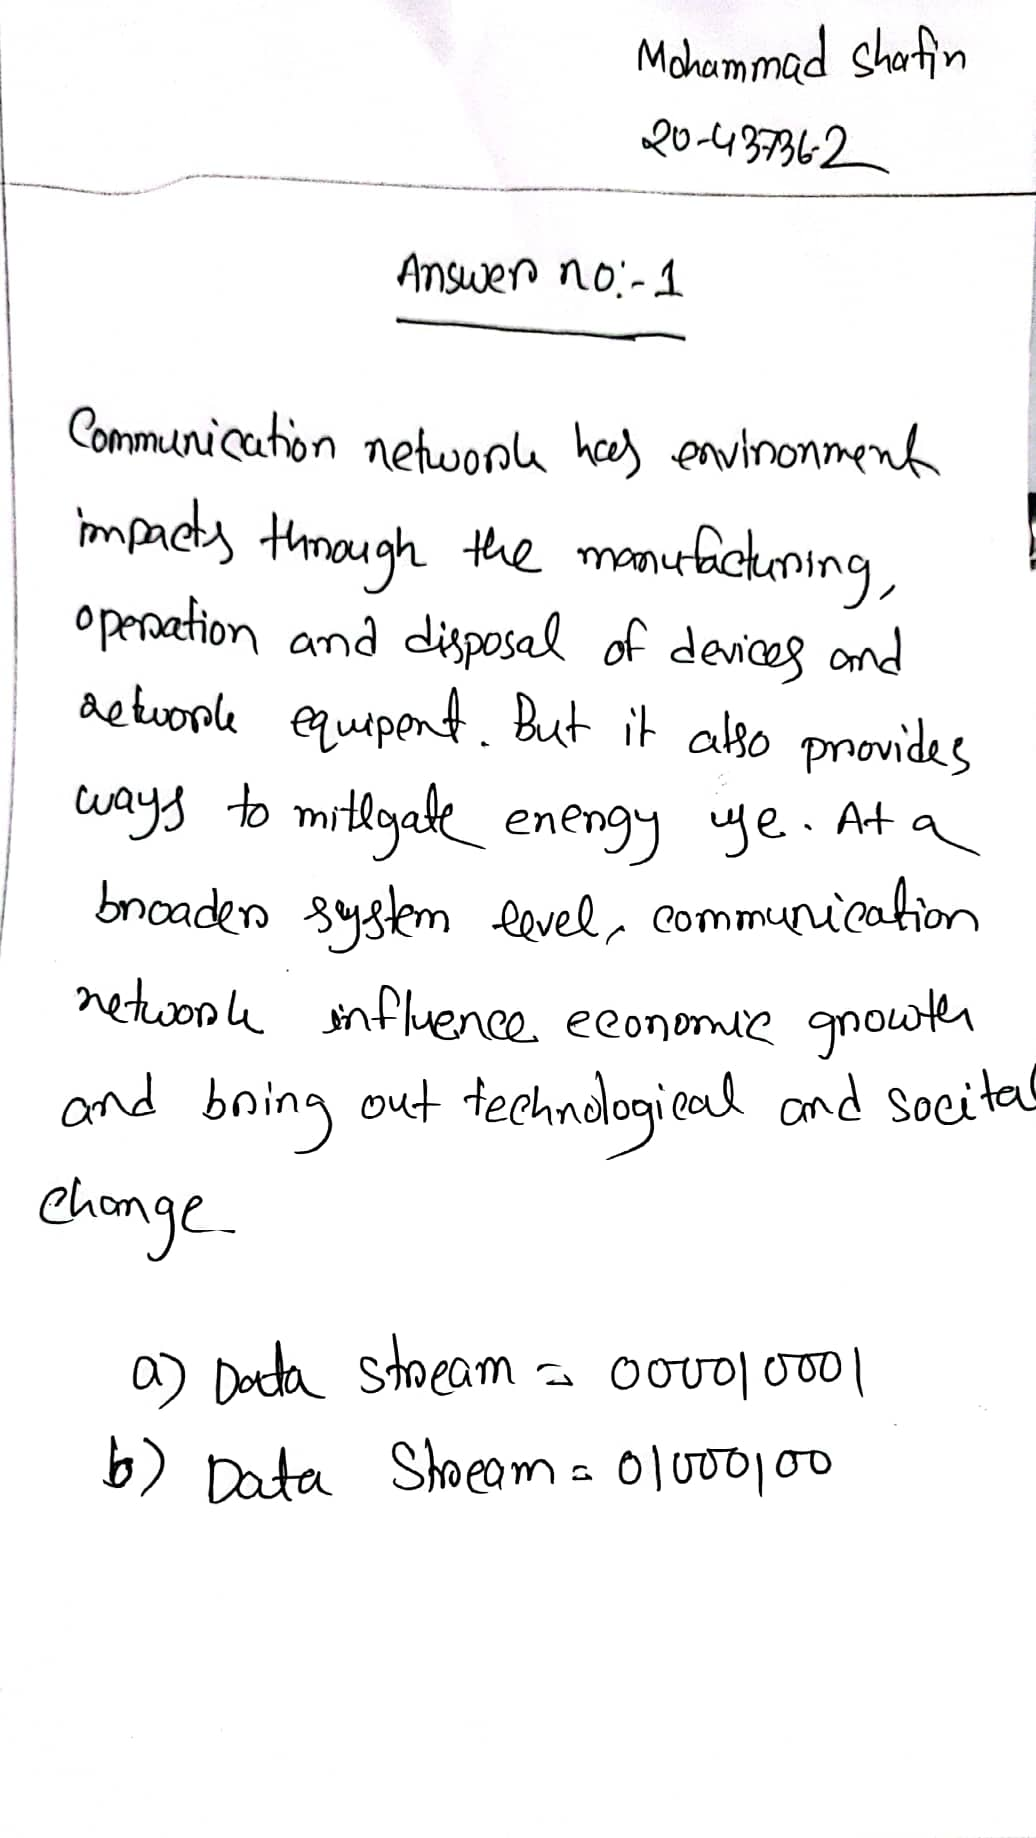 Mohammad Shafin
20-43736-2
Answer no:-1
Communication network has environment
impacts through the manufacturing,
operation and disposal of devices and
network equipent. But it also provides
ways to mitigate energy use. At a
broader system level, communication
network influence economic growth
and bring out technological and socital
change
a) Data stream = 000010001
b) Data Stream = 01000100